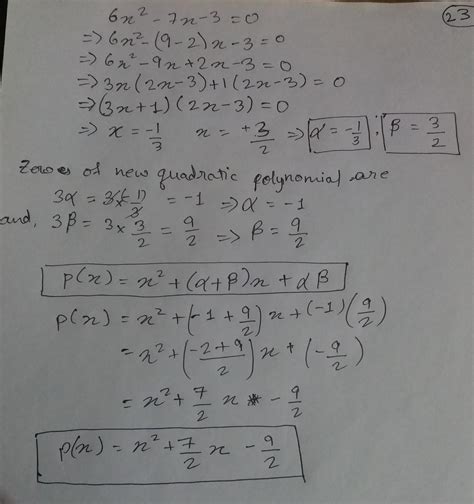 6x² - 7x - 3 = 0
(23)
⇒ 6x² - (9-2)x - 3 = 0
⇒ 6x² - 9x + 2x - 3 = 0
⇒ 3x(2x-3) + 1(2x-3) = 0
⇒ (3x+1)(2x-3) = 0
⇒ x = -1/3 x = +3/2 ⇒ α = -1/3 ; β = 3/2
Zeroes of new quadratic polynomial are
3α = 3×(-1)/3 = -1 ⇒ α = -1
and, 3β = 3 × 3/2 = 9/2 ⇒ β = 9/2
p(x) = x² + (α+β)x + αβ
p(x) = x² + (-1 + 9/2)x + (-1)(9/2)
= x² + (-2+9/2)x + (-9/2)
= x² + 7/2 x - 9/2
p(x) = x² + 7/2 x - 9/2